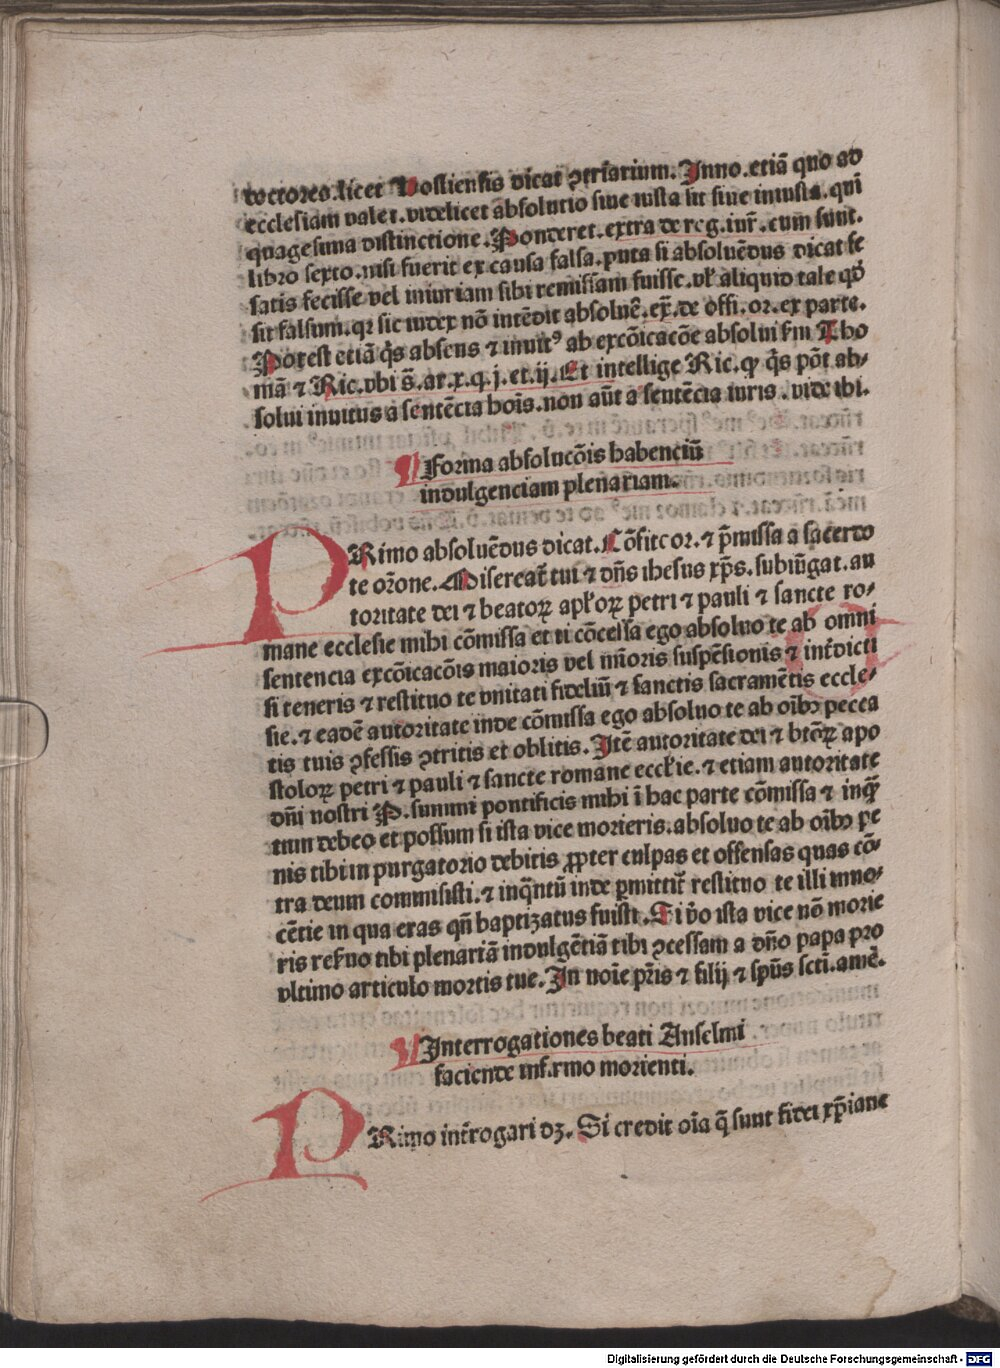 doctores.licet Hostiensis dicat ꝯtrariũm. Inno.etiã quo ad
ecclesiam valet.videlicet absolutio siue iusta sit siue iniusta.qui
quagesima distinctione.Ponderet.extra de reg.iur̃.cum sunt.
libro sexto.nisi fuerit ex causa falsa.puta si absoluẽdus dicat se
satis fecisse vel iniuriam sibi remissam fuisse.vl̓ aliquid tale qđ
sit falsum.qꝛ sic iudex nõ intẽdit absoluẽ.ex̃.de offi.or.ex parte.
Potest etiã q̇s absens ⁊ inuitꝰ ab excõicacõe absolui s̃m Tho
mã ⁊ Ric.vbi s̃.ar.x.q.j.et.ij.Et intellige Ric.ꝙ q̇s põt ab⸗
solui inuitus a sentẽcia hoĩs.non aũt a sentẽcia iuris.vide ibi.
¶Forma absolucõis habenciũ
indulgenciam plenariam.
PRimo absoluẽdus dicat.Cõfiteor.⁊ p̃missa a sacerdo
te orõne.Misereat̃ tui ⁊ dñs ihesus xp̃s.subiũgat.au
toritate dei ⁊ beatoꝝ apl̓oꝝ petri ⁊ pauli ⁊ sancte ro⸗
mane ecclesie mihi cõmissa et ti cõcessa ego absoluo te ab omni
sentencia excõicacõis maioris vel mĩoris suspẽsionis ⁊ int̃dicti
si teneris ⁊ restituo te vnitati fideliũ ⁊ sanctis sacramẽtis eccle⸗
sie.⁊ eadẽ autoritate inde cõmissa ego absoluo te ab oĩbꝫ pecca
tis tuis ꝯfessis ꝯtritis et oblitis. Itẽ autoritate dei ⁊ btõꝝ apo
stoloꝝ petri ⁊ pauli ⁊ sancte romane eccl̓ie.⁊ etiam autoritate
dñi nostri P.summi pontificis mihi ĩ hac parte cõmissa ⁊ inq̃
tum debeo et possum si ista vice morieris.absoluo te ab oĩbꝫ pe
nis tibi in purgatorio debitis ꝓpter culpas et offensas quas cõ⸗
tra deum commisisti.⁊ inq̃ntũ inde ꝑmittit̃ restituo te illi inno⸗
cẽtie in qua eras qñ baptizatus fuisti.Si v̓o ista vice nõ morie
ris res̓uo tibi plenariã indulgẽtiã tibi ꝯcessam a dño papa pro
vltimo articulo mortis tue.In noĩe pr̃is ⁊ filij ⁊ sp̃us sct̃i.amẽ.
¶Interrogationes beati Anselmi
faciende infirmo morienti.
PRimo int̃rogari dꝫ.Si credit oĩa q̃ sunt fidei xp̃iane
Digitalisierung gefördert durch die Deutsche Forschungsgemeinschaft - DFG